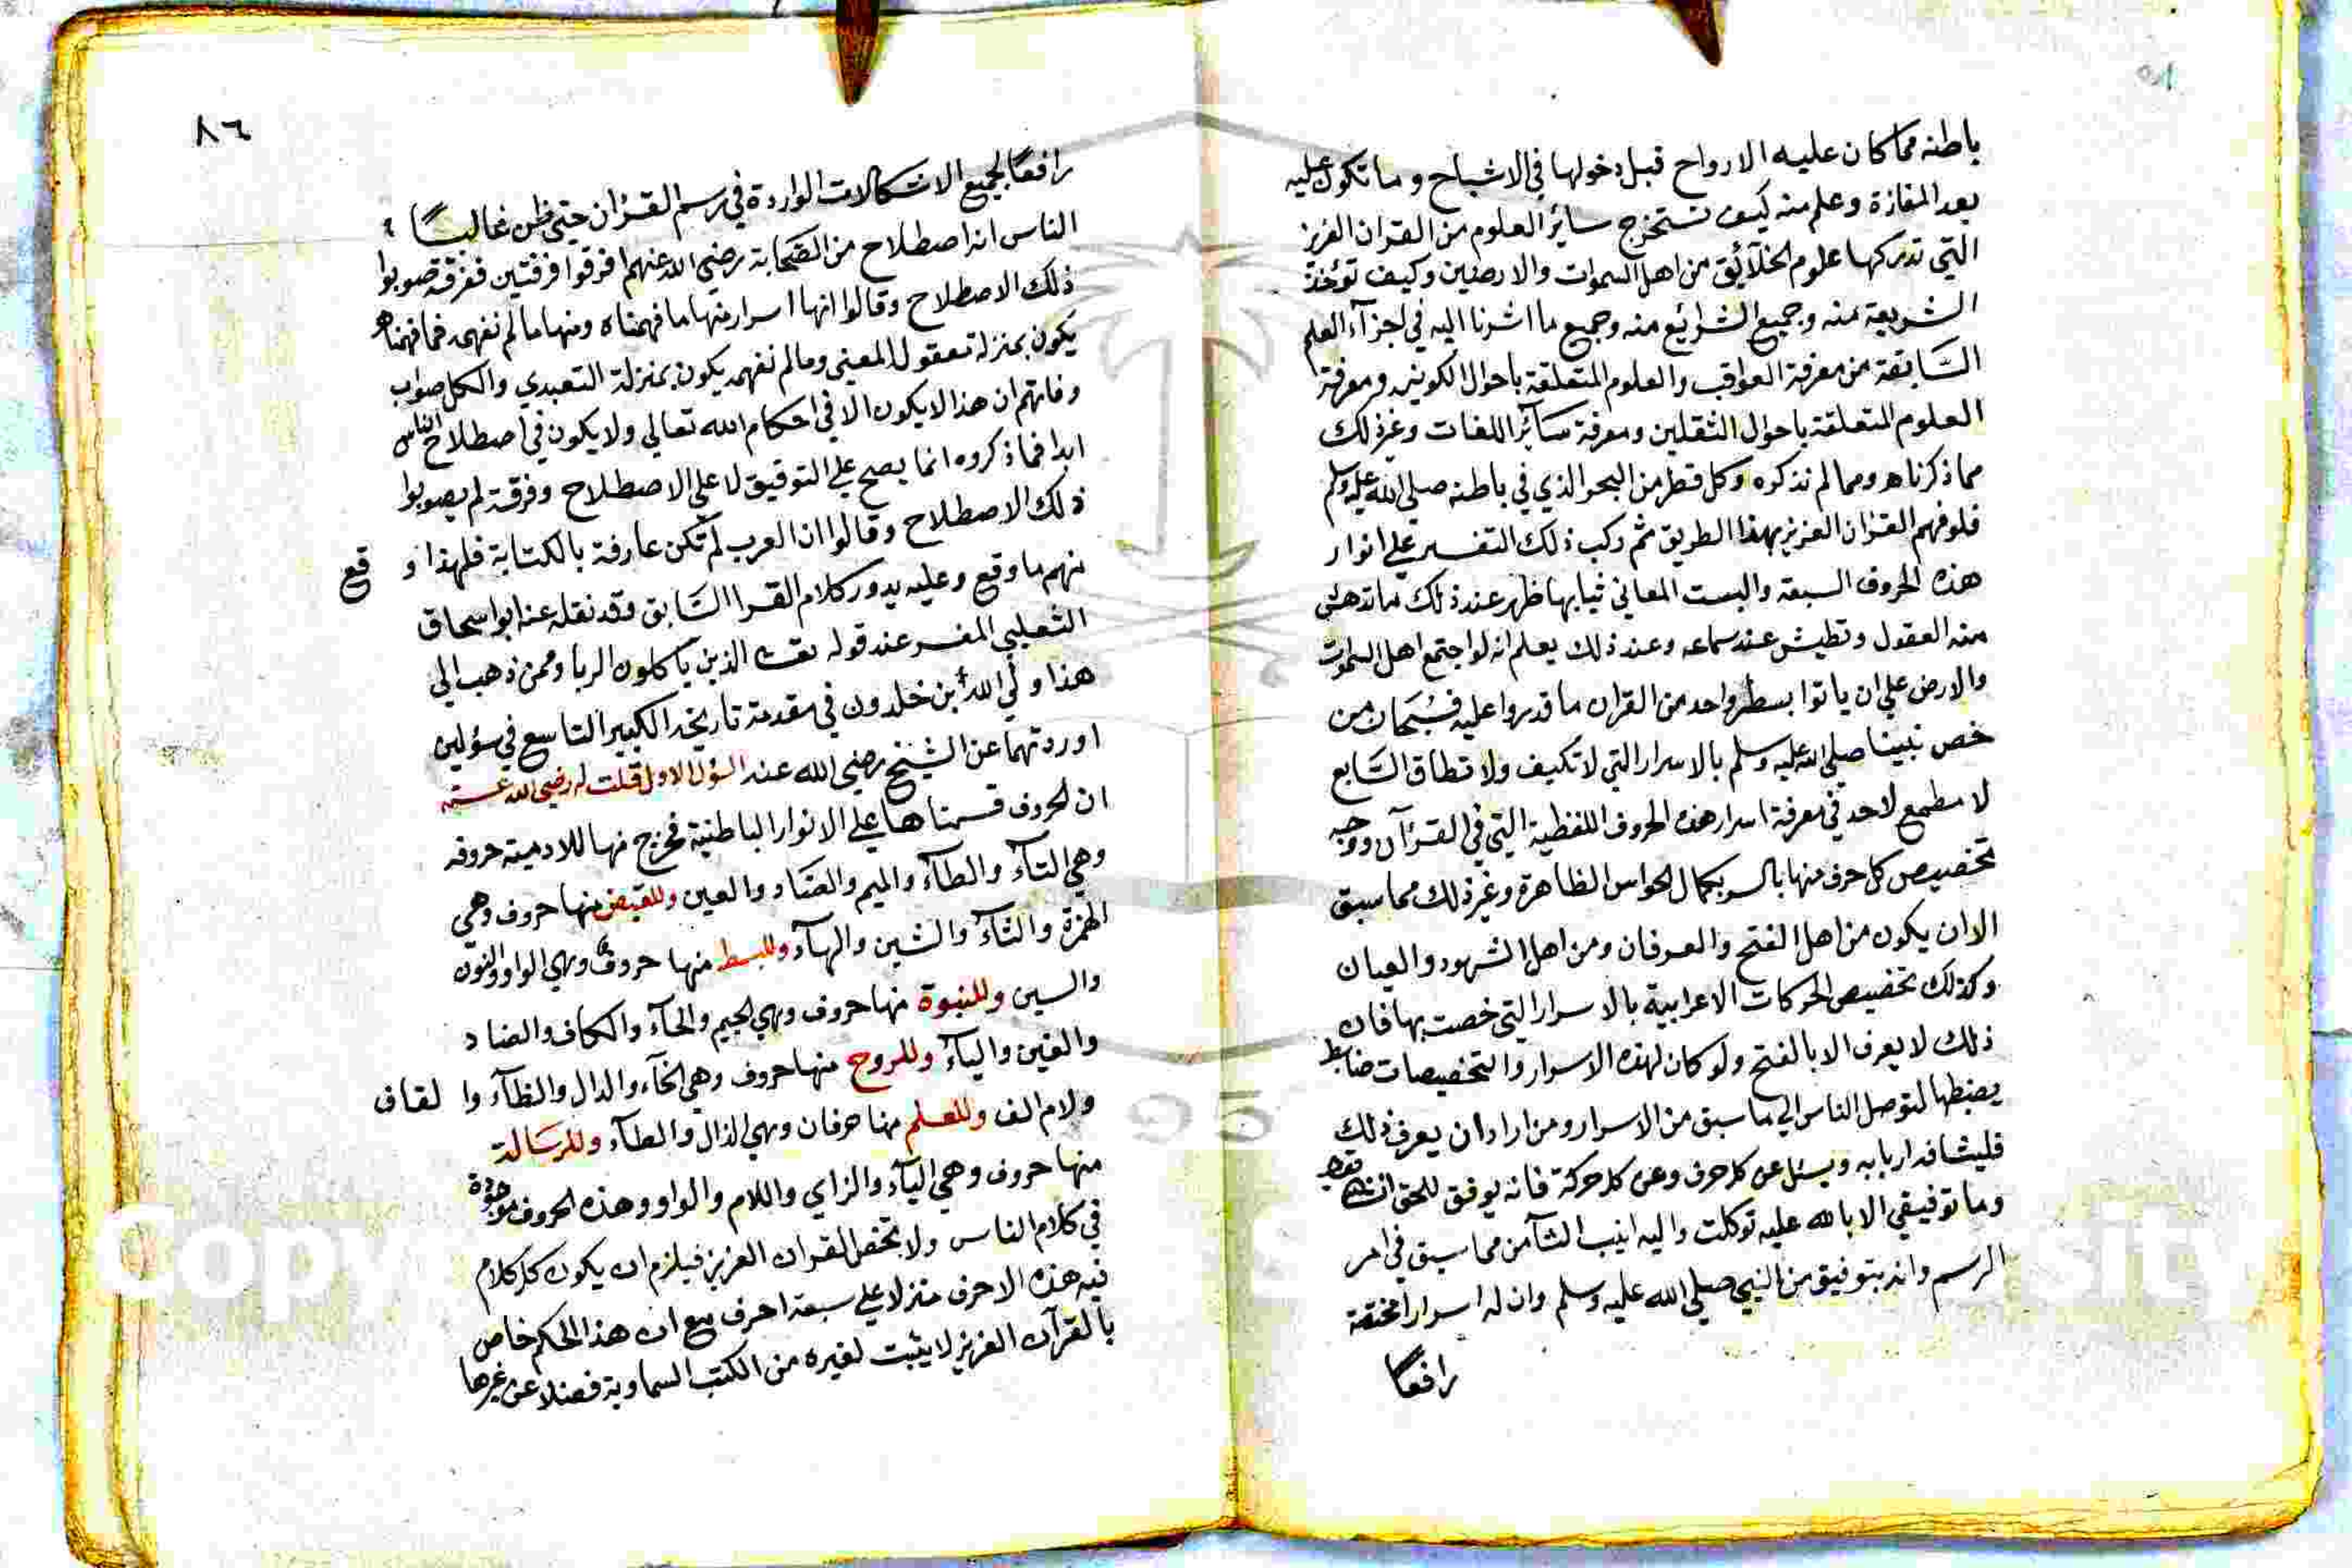 باطنه مما كان عليه الارواح قبل دخولها في الاشباح وما تكون عليه
بعد المفازة وعلم منه كيف تستخرج سائر العلوم من القران العزيز
التي تدركها علوم الخلآئق من اهل السموات والارضين وكيف تؤخذ
الشريعة منه وجميع الشرائع منه وجميع ما اشرنا اليه في اجزآء العلم
السّابقة من معرفة العواقب والعلوم المتعلقة باحوال الكونين ومعرفة
العلوم المتعلقة باحوال الثقلين ومعرفة سآئر اللغات وغير ذلك
مما ذكرناه ومما لم نذكره وكل قطر من البحر الذي في باطنه صلى الله عليه وسلم
فلو فهم القران العزيز بهذا الطريق ثم ركب ذلك التفسير على انوار
هذه الحروف السبعة والبست المعاني ثيابها ظهر عند ذلك ما تدهش
منه العقول وتطيش عند سماعه وعند ذلك يعلم انه لو اجتمع اهل السموات
والارض على ان ياتوا بسطر واحد من القران ما قدروا عليه فسُبحان من
خص نبينا صلى الله عليه وسلم بالاسرار التي لا تكيف ولا تطاق السّابع
لا مطمع لاحد في معرفة اسرار هذه الحروف اللفظية التي في القرآن ووجه
تخصيص كل حرف منها بالسر بكمال الحواس الظاهرة وغير ذلك مما سبق
الا ان يكون من اهل الفتح والعرفان ومن اهل الشهود والعيان
وكذلك تخصيص الحركات الاعرابية بالاسرار التي خصت بها فان
ذلك لا يعرف الا بالفتح ولو كان لهذه الاسرار والتخصيصات ضابط
يضبطها لتوصل الناس الي ما سبق من الاسرار ومن اراد ان يعرف ذلك
فليشافه اربابه ويسئل عن كل حرف وعن كل حركة فانه يوفق للحق ان شاء
وما توفيقي الا بالله عليه توكلت واليه انيب الثآمن مما سبق في امر
الرسم وانه بتوفيق من النبي صلي الله عليه وسلم وان له اسرارا مختقة
رافعًا
٨٦
رافعًا لجميع الاشكالات الواردة في رسم القران حتى ظن غالبًا
الناس انه اصطلاح من الصّحابة رضي الله عنهم افرقوا فرقتين ففرقة صوبوا
ذلك الاصطلاح وقالوا انها اسرار منها ما فهمناه ومنها ما لم نفهمه فما فهمناه
يكون بمنزلة تعقول المعني وما لم نفهمه يكون بمنزلة التعبدي والكل صواب
وفاتهم ان هذا لا يكون الا في احكام الله تعالي ولا يكون في اصطلاح الناس
ابدا فما ذكروه انما يصح علي التوقيق لا علي الاصطلاح وفرقة لم يصوبوا
ذلك الاصطلاح وقالوا ان العرب لم تكن عارفة بالكتابة فلهذا وقع
منهم ما وقع وعليه يدور كلام القرا السّابق وقد نقله عنه ابو اسحاق
الثعلبي المفسر عند قوله تعالى الذين ياكلون الربا وممن ذهب الي
هذا ولي الله ابن خلدون في مقدمة تاريخه الكبير التاسع في سؤلين
اوردتهما عن الشيخ رضي الله عنه السؤل الاول قلت له رضي الله عنه
ان الحروف قسمناها علي الانوار الباطنية فخرج منها للادمية حروفه
وهي التآء والطآء والميم والصّاد والعين وللقبض منها حروف وهي
الهمزة والثآء والشين والهآء وللبسط منها حروف وهي الواو والنون
والسين وللنبوة منها حروف وهي الجيم والحآء والكاف والضاد
والغين واليآء وللروح منها حروف وهي الخآء والدال والظآء والقاف
ولام الف وللعلم منها حرفان وهي الذال والطآء وللرسَالة
منها حروف وهي اليآء والزاي واللام والواو وهذه الحروف موجودة
في كلام الناس ولا تختص القران العزيز فيلزم ان يكون كل كلام
فيه هذه الاحرف منزلا علي سبعة احرف مع ان هذا الحكم خاص
بالقرآن العزيز لا يثبت لغيره من الكتب السماوية فضلا عن غيرها